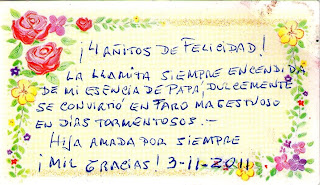 ¡14 AÑITOS DE FELICIDAD!
LA LLAMITA SIEMPRE ENCENDIDA
DE MI ESENCIA DE PAPÁ, DULCEMENTE
SE CONVIRTIÓ EN FARO MAGESTUOSO
EN DÍAS TORMENTOSOS.-
HIJA AMADA POR SIEMPRE
¡MIL GRACIAS! 3-11-2011